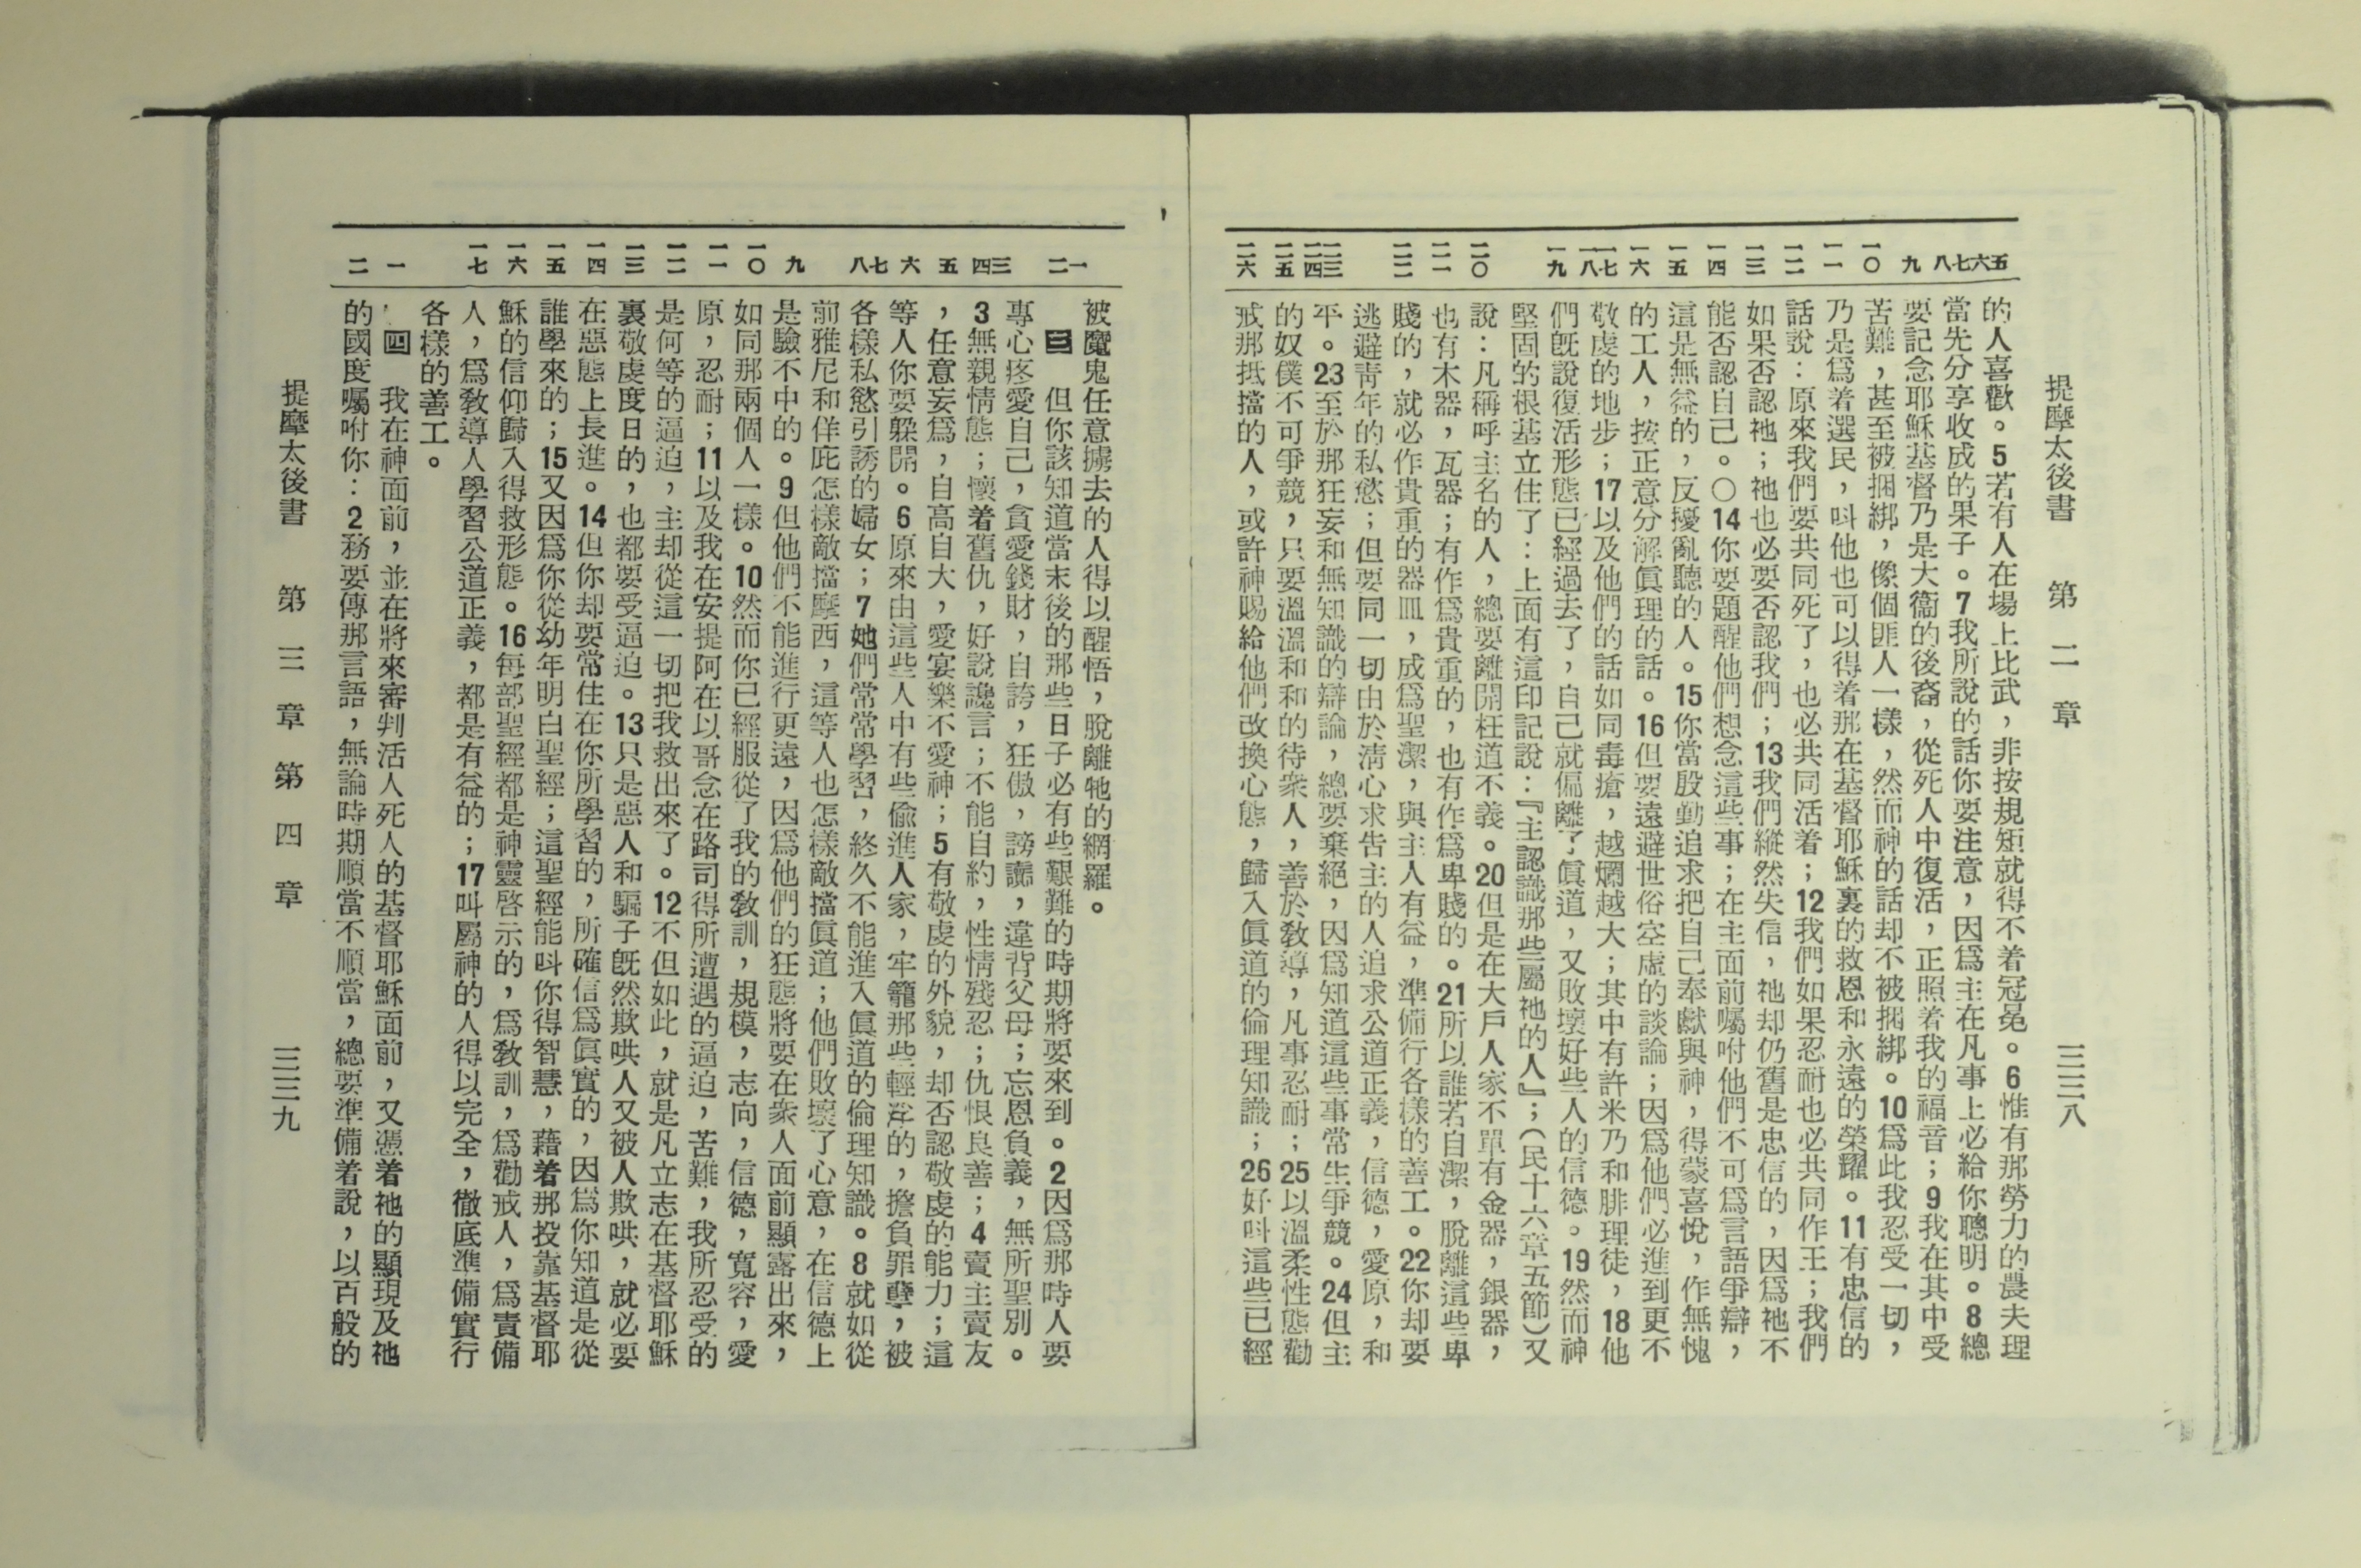 提摩太後書 第二章 三三八
五 六 七 八 九 一〇 一一 一二 一三 一四 一五 一六 一七 一八 一九 二〇 二一 二二 二三 二四 二五 二六
的人喜歡。5若有人在場上比武，非按規矩就得不着冠冕。6惟有那勞力的農夫理
當先分享收成的果子。7我所說的話你要注意，因爲主在凡事上必給你聰明。8總
要記念耶穌基督乃是大衞的後裔，從死人中復活，正照着我的福音；9我在其中受
苦難，甚至被捆綁，像個匪人一樣，然而神的話却不被捆綁。10爲此我忍受一切，
乃是爲着選民，叫他也可以得着那在基督耶穌裏的救恩和永遠的榮耀。11有忠信的
話說：原來我們要共同死了，也必共同活着；12我們如果忍耐也必共同作王；我們
如果否認祂；祂也必要否認我們；13我們縱然失信，祂却仍舊是忠信的，因爲祂不
能否認自己。〇14你要題醒他們想念這些事；在主面前囑咐他們不可爲言語爭辯，
這是無益的，反擾亂聽的人。15你當殷勤追求把自己奉獻與神，得蒙喜悅，作無愧
的工人，按正意分解眞理的話。16但要遠避世俗空虛的談論；因爲他們必進到更不
敬虔的地步；17以及他們的話如同毒瘡，越爛越大；其中有許米乃和腓理徒，18他
們旣說復活形態已經過去了，自己就偏離了眞道，又敗壞好些人的信德。19然而神
堅固的根基立住了：上面有這印記說：『主認識那些屬祂的人』；（民十六章五節）又
說：凡稱呼主名的人，總要離開枉道不義。20但是在大戶人家不單有金器，銀器，
也有木器，瓦器；有作爲貴重的，也有作爲卑賤的。21所以誰若自潔，脫離這些卑
賤的，就必作貴重的器皿，成爲聖潔，與主人有益，準備行各樣的善工。22你却要
逃避靑年的私慾；但要同一切由於淸心求告主的人追求公道正義，信德，愛原，和
平。23至於那狂妄和無知識的辯論，總要棄絕，因爲知道這些事常生爭競。24但主
的奴僕不可爭競，只要溫溫和和的待衆人，善於敎導，凡事忍耐；25以溫柔性態勸
戒那抵擋的人，或許神賜給他們改換心態，歸入眞道的倫理知識；26好叫這些已經
一 二 三 四 五 六 七 八 九 一〇 一一 一二 一三 一四 一五 一六 一七 一 二
被魔鬼任意擄去的人得以醒悟，脫離牠的網羅。
三 但你該知道當末後的那些日子必有些艱難的時期將要來到。2因爲那時人要
專心疼愛自己，貪愛錢財，自誇，狂傲，謗讟，違背父母；忘恩負義，無所聖別。
3無親情態；懷着舊仇，好說讒言；不能自約，性情殘忍；仇恨良善；4賣主賣友
，任意妄爲，自高自大，愛宴樂不愛神；5有敬虔的外貌，却否認敬虔的能力；這
等人你要躱開。6原來由這些人中有些偸進人家，牢籠那些輕浮的，擔負罪孽，被
各樣私慾引誘的婦女；7她們常常學習，終久不能進入眞道的倫理知識。8就如從
前雅尼和佯庇怎樣敵擋摩西，這等人也怎樣敵擋眞道；他們敗壞了心意，在信德上
是驗不中的。9但他們不能進行更遠，因爲他們的狂態將要在衆人面前顯露出來，
如同那兩個人一樣。10然而你已經服從了我的敎訓，規模，志向，信德，寬容，愛
原，忍耐；11以及我在安提阿在以哥念在路司得所遭遇的逼迫，苦難，我所忍受的
是何等的逼迫，主却從這一切把我救出來了。12不但如此，就是凡立志在基督耶穌
裏敬虔度日的，也都要受逼迫。13只是惡人和騙子旣然欺哄人又被人欺哄，就必要
在惡態上長進。14但你却要常住在你所學習的，所確信爲眞實的，因爲你知道是從
誰學來的；15又因爲你從幼年明白聖經；這聖經能叫你得智慧，藉着那投靠基督耶
穌的信仰歸入得救形態。16每部聖經都是神靈啓示的，爲敎訓，爲勸戒人，爲責備
人，爲敎導人學習公道正義，都是有益的；17叫屬神的人得以完全，徹底準備實行
各樣的善工。
四 我在神面前，並在將來審判活人死人的基督耶穌面前，又憑着祂的顯現及祂
的國度囑咐你：2務要傳那言語，無論時期順當不順當，總要準備着說，以百般的
提摩太後書 第三章 第四章 三三九